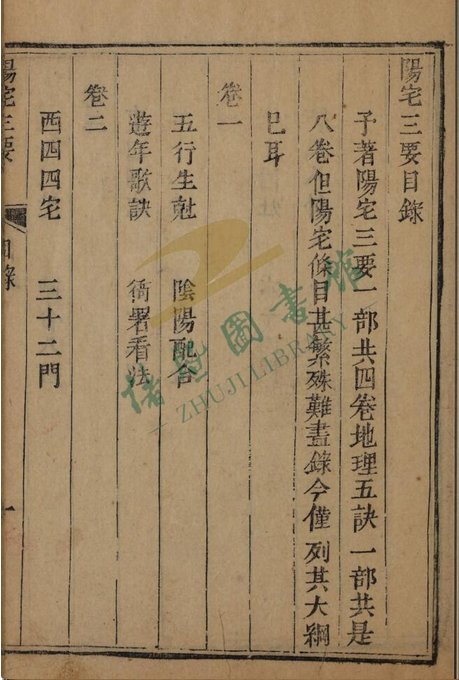 陽宅三要目錄
予著陽宅三要一部共四卷地理五訣一部共是
八卷但陽宅條目甚繁殊難盡錄今僅列其大綱
已耳
卷一
五行生尅 陰陽配合
遊年歌訣 衙署看法
卷二
西四四宅 三十二門
陽宅三要 目錄 一
諸暨圖書館
ZHUJI LIBRARY